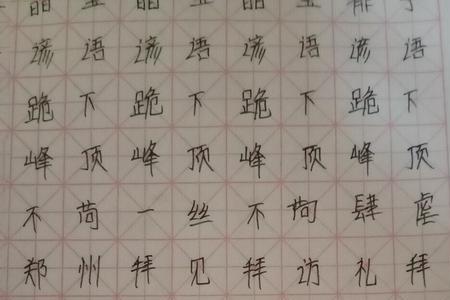 谚语谚语谚语谚语
跪下跪下跪下跪下
峰顶峰顶峰顶峰顶
不苟一丝不苟肆虐
郑州拜见拜访礼拜